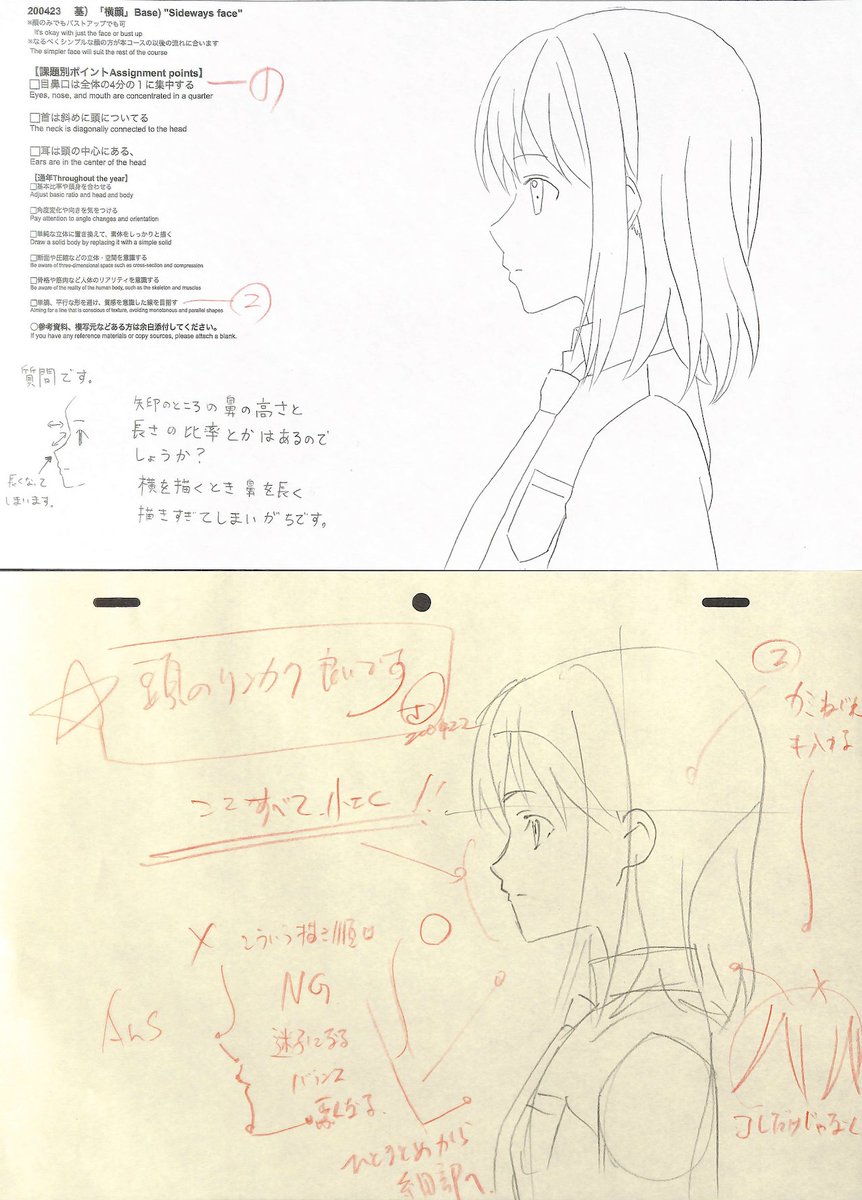 200423 基）「横顔」Base) "Sideways face"
※顔のみでもバストアップでも可
It's okay with just the face or bust up
※なるべくシンプルな顔の方が本コースの以後の流れに合います
The simpler face will suit the rest of the course
【課題別ポイントAssignment points】
□目鼻口は全体の4分の1に集中する
Eyes, nose, and mouth are concentrated in a quarter
□首は斜めに頭についてる
The neck is diagonally connected to the head
□耳は頭の中心にある、
Ears are in the center of the head
【通年Throughout the year】
□基本比率や頭身を合わせる
Adjust basic ratio and head and body
□角度変化や向きを気をつける
Pay attention to angle changes and orientation
□単純な立体に置き換えて、素体をしっかりと描く
Draw a solid body by replacing it with a simple solid
□断面や圧縮などの立体・空間を意識する
Be aware of three-dimensional space such as cross-section and compression
□骨格や筋肉など人体のリアリティを意識する
Be aware of the reality of the human body, such as the skeleton and muscles
□単調、平行な形を避け、質感を意識した線を目指す
Aiming for a line that is conscious of texture, avoiding monotonous and parallel shapes
○参考資料、模写元などある方は余白添付してください。
If you have any reference materials or copy sources, please attach a blank.
①
②
質問です。
矢印のところの鼻の高さと
長さの比率とかはあるので
しょうか？
横を描くとき鼻を長く
描きすぎてしまいがちです。
長くなって
しまいます。
頭のリンカク良いです
200422
②
ここすべて小さく!!
× こういう描き順は
NG
迷子になる
バランス
Ans
ひとまとめから
細部へ